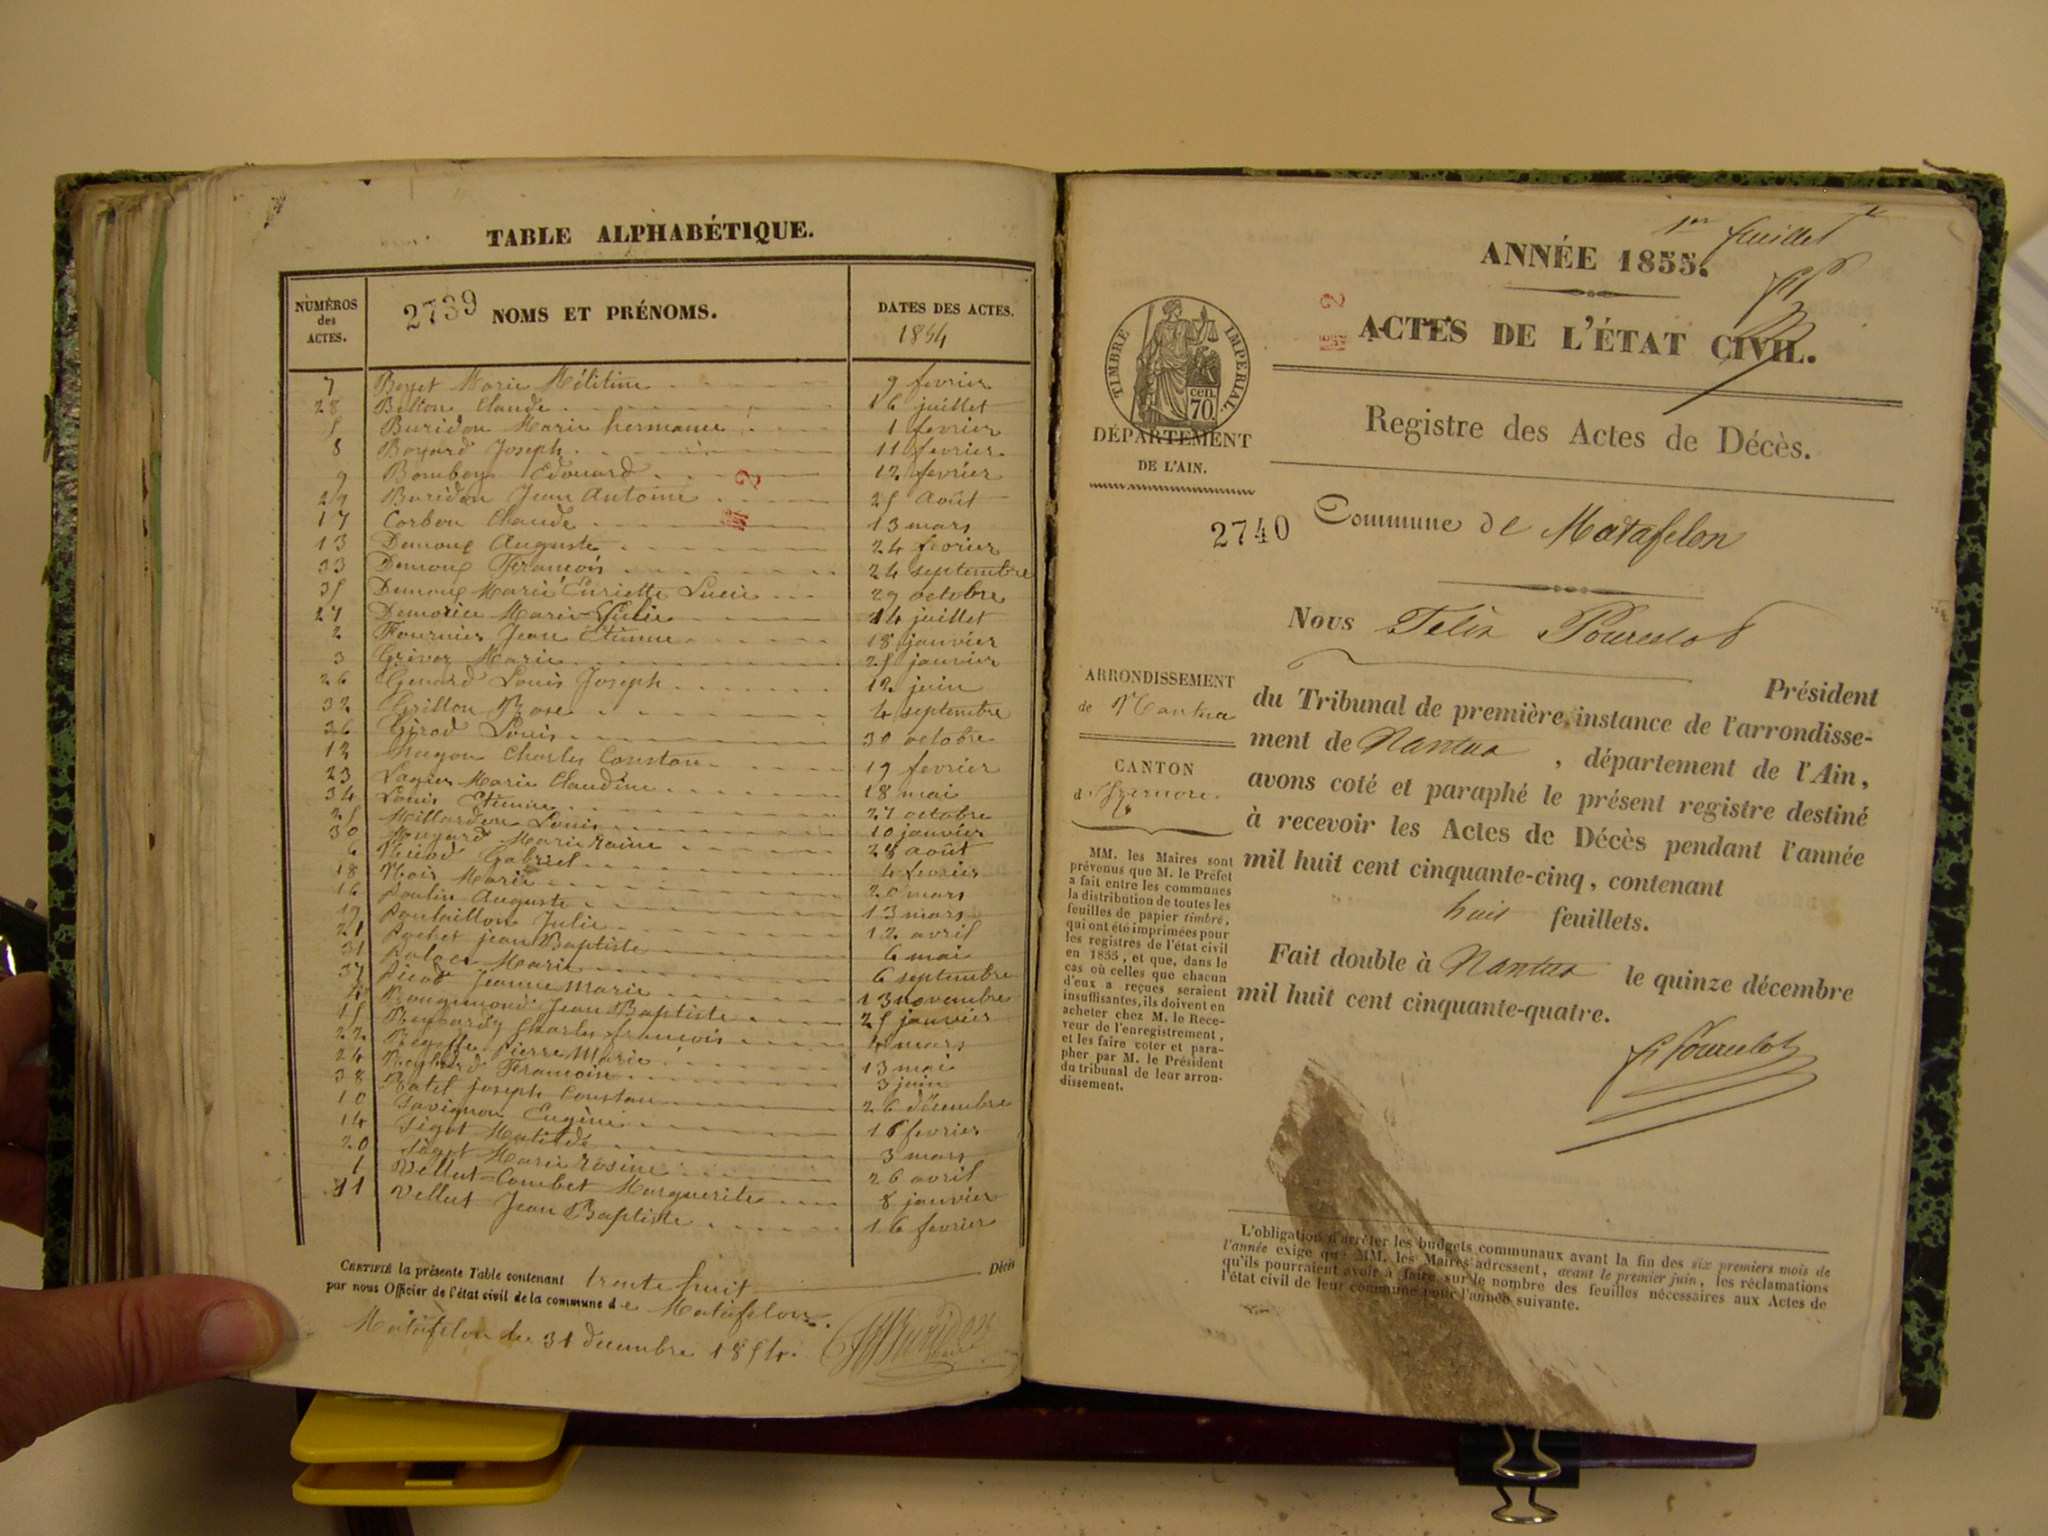 TABLE ALPHABÉTIQUE.
NUMÉROS des ACTES.
2739 NOMS ET PRÉNOMS.
DATES DES ACTES.
1854
7 Marie 9 fevrier
28 Claude 16 juillet
5 Buridon Marie hermance 1 fevrier
8 Boyard Joseph 11 fevrier
9 Edouard 12 fevrier
29 Buridon Jean Antoine 25 Août
17 Corbou Claude 13 mars
13 Demoux Auguste 24 fevrier
33 Demoux François 24 septembre
35 Demoux Marie Lucie 29 octobre
27 Marie 14 juillet
2 Fournier Jean Etienne 18 janvier
3 Marie 25 janvier
26 Louis Joseph 12 juin
32 Grillon Rose 4 septembre
36 Girod Louis 30 octobre
12 Charles Constan 19 fevrier
23 Lagier Marie Claudine 18 mai
34 Louis Etienne 27 octobre
25 Louis 10 janvier
30 Marie 28 août
6 Gabriel 4 fevrier
18 Marie 20 mars
16 Poulin Auguste 13 mars
19 Julie 12 avril
21 Pochet jean Baptiste 6 mai
31 Marie 6 septembre
37 Picod Jeanne Marie 13 novembre
4 Jean Baptiste 25 janvier
15 Charles françois 4 mars
22 Pierre Marie 13 mai
24 François 3 juin
38 Ratel joseph Constan 26 décembre
10 Savignon Eugène 16 fevrier
14 Sigot 3 mars
20 Sigot Marie rosine 26 avril
1 Vellut-Combet Marguerite 8 janvier
11 Vellut Jean Baptiste 16 fevrier
CERTIFIÉ la présente Table contenant trente huit Décès
par nous Officier de l'état civil de la commune de Matafelon.
Matafelon le 31 decembre 1854.
1er feuillet
ANNÉE 1855.
ACTES DE L'ÉTAT CIVIL.
TIMBRE IMPÉRIAL.
70 cen.
DÉPARTEMENT
DE L'AIN.
Registre des Actes de Décès.
2740 Commune de Matafelon
Nous Félix
Président
du Tribunal de première instance de l'arrondisse-
ment de Nantua , département de l'Ain,
avons coté et paraphé le présent registre destiné
à recevoir les Actes de Décès pendant l'année
mil huit cent cinquante-cinq, contenant
huit feuillets.
Fait double à Nantua le quinze décembre
mil huit cent cinquante-quatre.
ARRONDISSEMENT
de Nantua
CANTON
d'Izernore.
MM. les Maires sont
prévenus que M. le Préfet
a fait entre les communes
la distribution de toutes les
feuilles de papier timbré,
qui ont été imprimées pour
les registres de l'état civil
en 1855, et que, dans le
cas où celles que chacun
d'eux a reçues seraient
insuffisantes, ils doivent en
acheter chez M. le Rece-
veur de l'enregistrement,
et les faire coter et para-
pher par M. le Président
du tribunal de leur arron-
dissement.
L'obligation d'arrêter les budgets communaux avant la fin des six premiers mois de
l'année exige que MM. les Maires adressent, avant le premier juin, les réclamations
qu'ils pourraient avoir à faire sur le nombre des feuilles nécessaires aux Actes de
l'état civil de leur commune pour l'année suivante.